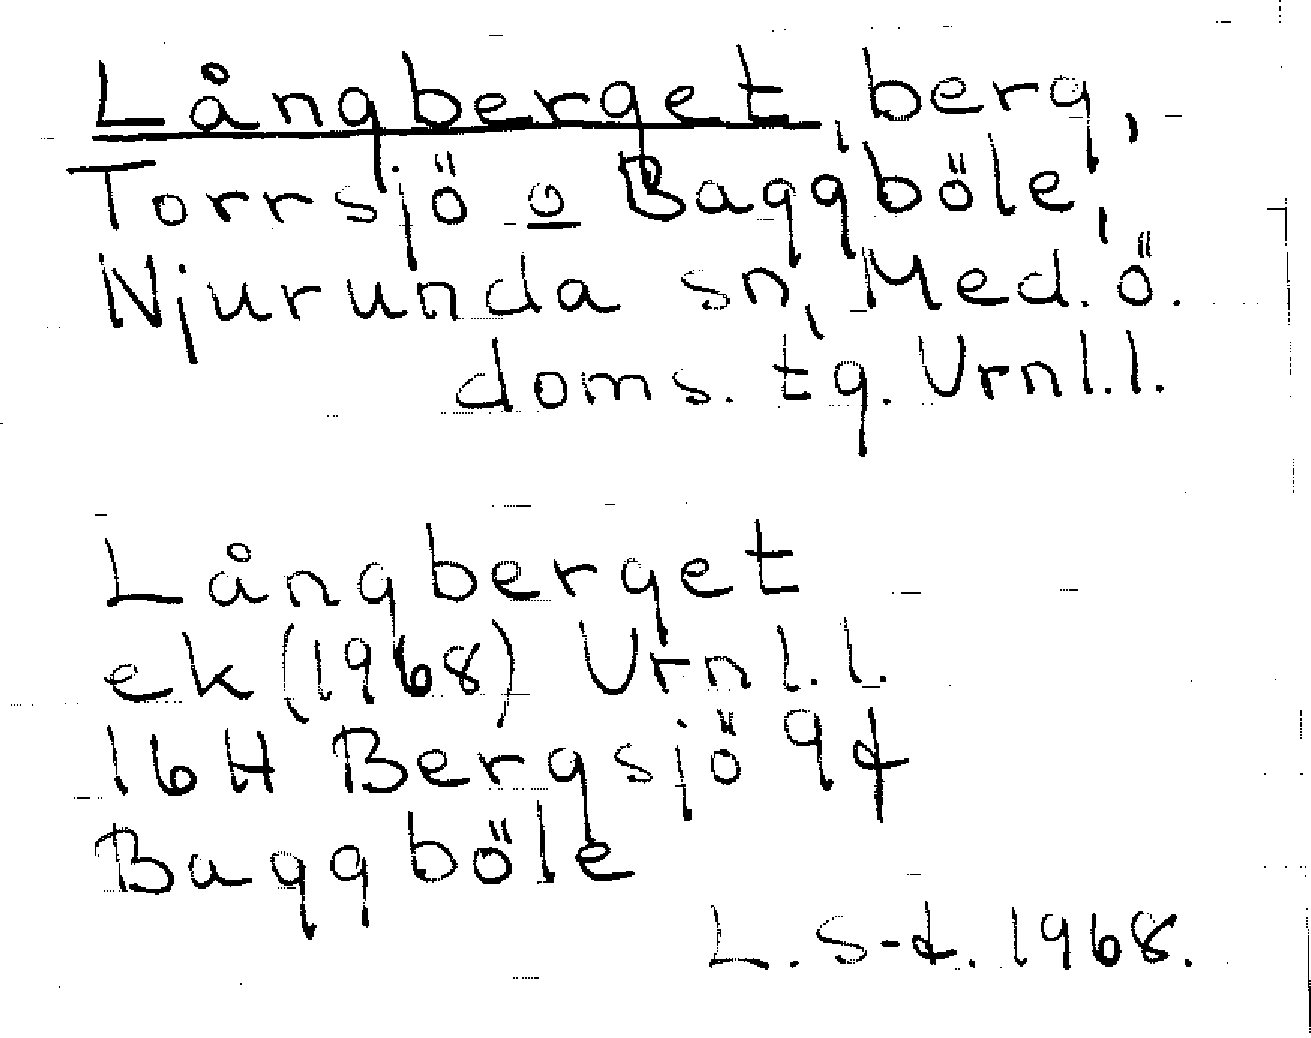 Långberget, berg,
Torrsjö o Baggböle,
Njurunda sn, Med. ö.
doms. tg. Vrnl.l.
Långberget
ek (1968) Vrnl.l.
16H Bergsjö 9d
Baggböle
L. S-d. 1968.